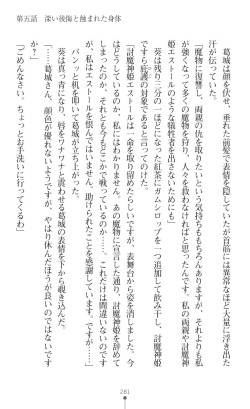 第五話　深い後悔と蝕まれた身体
葛城は顔を伏せ、垂れた前髪で表情を隠していたが首筋には異常なほど大量に浮き出た
汗が伝っていた。
「魔物に復讐し、両親の仇を取りたいという気持ちももちろんありましたが、それ以上に
が強くなって多くの魔物を狩り、人々を救わなければと思ったんです。私の両親や討魔神
姫エストールのような犠牲者を出さないためにも」
葵は残り三分の一ほどになった紅茶にガムシロップを一つ追加して飲み干し、討魔神姫
を討つ対象であると言ってのけた。
「討魔神姫エストールは一命を取り留めたらしいですが、表舞台から姿を消しました。今
どこで何をしているのか、私にはわかりません。あの魔物に言われた通り、討魔神姫を辞めて
しまったのか、それとも今もどこかで戦っているのか……。これだけは間違いないのです
が、私はエストールを恨んではいません。助けられたことを感謝しています。ですが……」
バンッと机を叩いて葛城が立ち上がった。
葵は真っ青になり、唇をワナワナと震わせる葛城の表情を下から覗き込む。
「……葛城さん、顔色が優れないようですが、やはり休んだほうが良いのではないです
か？」
「ごめんなさい、ちょっとお手洗いに行ってくるわ」
281